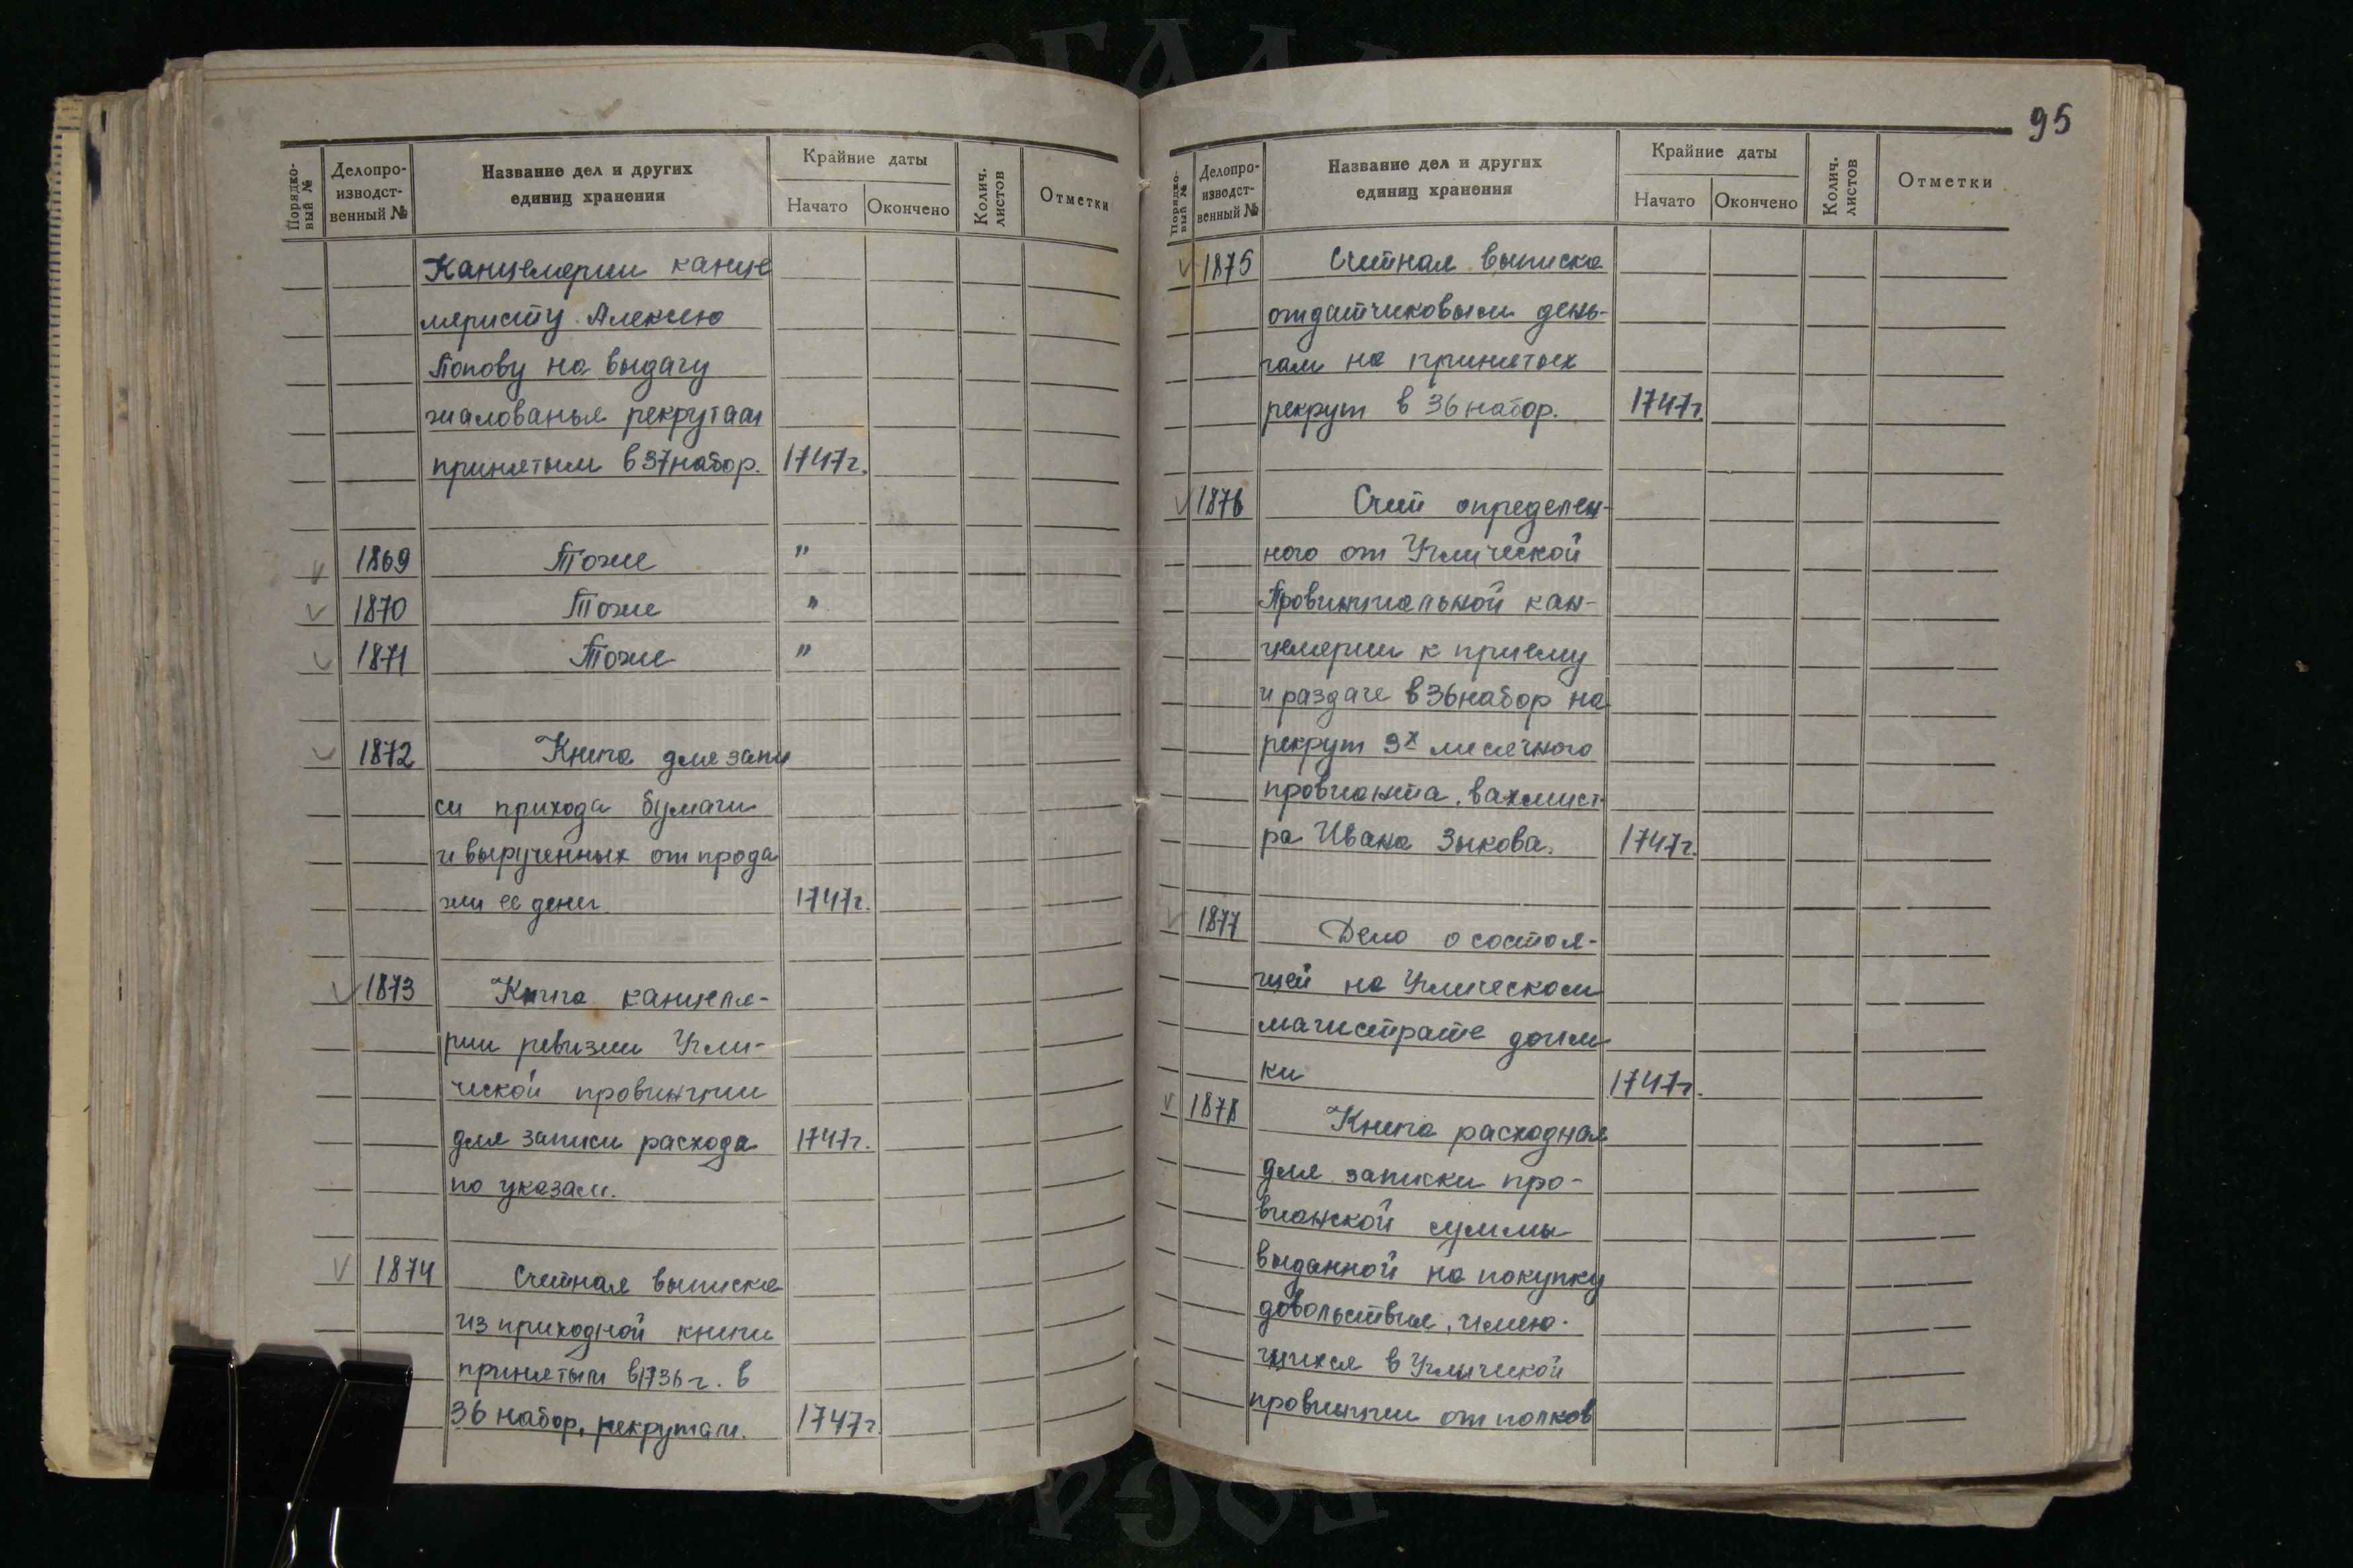 95
Порядко-
вый №
Делопро-
изводст-
венный №
Название дел и других
единиц хранения
Крайние даты
Начато
Окончено
Колич.
листов
Отметки
Канцелярии канце
ляристу Алексею
Попову на выдачу
жалованья рекрутам
принятым в 37 набор. 1747г.
1869 Тоже "
1870 Тоже "
1871 Тоже "
1872 Книга для запи
си прихода бумаги
и вырученных от прода
жи ее денег 1747г.
1873 Книга канцеля-
рии ревизии Угли-
ческой провинции
для записи расхода 1747г.
по указам.
1874 Счетная выписка
из приходной книги
принятым в 1736 г. в
36 набор, рекрутам. 1747г.
Порядко-
вый №
Делопро-
изводст-
венный №
Название дел и других
единиц хранения
Крайние даты
Начато
Окончено
Колич.
листов
Отметки
1875 Счетная выписка
отдатчиковым день-
гам на принятых
рекрут в 36 набор. 1747г.
1876 Счет определен-
ного от Углической
Провинциальной кан-
целярии к приему
и раздаче в 36 набор на
рекрут 3х месячного
провианта, вахмист-
ра Ивана Зыкова. 1747г.
1877 Дело о состоя-
щей на Углическом
магистрате доим
ки 1747г.
1878 Книга расходная
для записки про-
вианской суммы
выданной на покупку
довольствия, имею-
щихся в Углической
провинции от полков